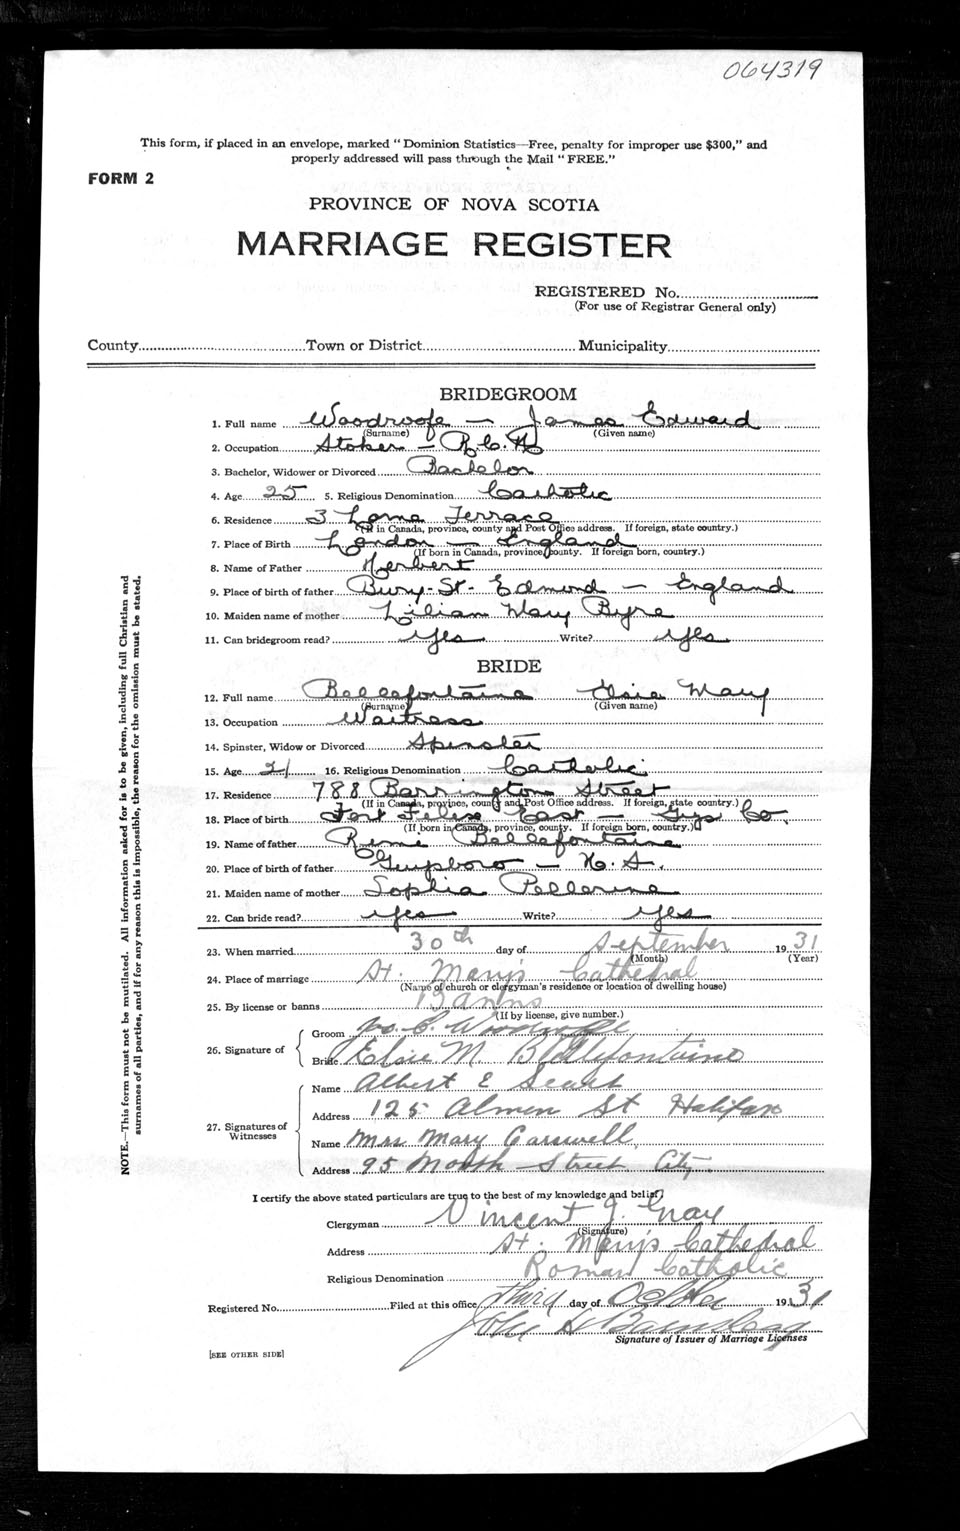 064319
This form, if placed in an envelope, marked " Dominion Statistics—Free, penalty for improper use $300," and
properly addressed will pass through the Mail " FREE."
FORM 2
PROVINCE OF NOVA SCOTIA
MARRIAGE REGISTER
REGISTERED No.
(For use of Registrar General only)
County Town or District Municipality
BRIDEGROOM
1. Full name Woodroofe — James Edward
(Surname) (Given name)
2. Occupation Stoker — R.C.N
3. Bachelor, Widower or Divorced Bachelor
4. Age 25 5. Religious Denomination Catholic
6. Residence 3 Lorne Terrace
(If in Canada, province, county and Post Office address. If foreign, state country.)
7. Place of Birth London — England
(If born in Canada, province, county. If foreign born, country.)
8. Name of Father Herbert
9. Place of birth of father Bury-St-Edmond — England
10. Maiden name of mother Lilian Mary Byre
11. Can bridegroom read? yes Write? yes
BRIDE
12. Full name Bellefontaine Elsie Mary
(Surname) (Given name)
13. Occupation Waitress
14. Spinster, Widow or Divorced Spinster
15. Age 21 16. Religious Denomination Catholic
17. Residence 788 Barrington Street
(If in Canada, province, county and Post Office address. If foreign, state country.)
18. Place of birth East — Guys Co.
(If born in Canada, province, county. If foreign born, country.)
19. Name of father Remi Bellefontaine
20. Place of birth of father Guysboro — N.S.
21. Maiden name of mother Sophia Pellerine
22. Can bride read? yes Write? yes
23. When married 30th day of September 1931
(Month) (Year)
24. Place of marriage St. Mary's Cathedral
(Name of church or clergyman's residence or location of dwelling house)
25. By license or banns Banns
(If by license, give number.)
26. Signature of Groom Woodroofe
Bride Elsie M. Bellefontaine
27. Signatures of Witnesses
Name Albert E
Address 125 Almon St Halifax
Name Mrs Mary Carswell
Address 95 Street City
I certify the above stated particulars are true to the best of my knowledge and belief.
Clergyman Vincent J. Gray
(Signature)
Address St. Mary's Cathedral
Religious Denomination Roman Catholic
Registered No. Filed at this office third day of October 1931
John
Signature of Issuer of Marriage Licenses
[SEE OTHER SIDE]
NOTE.—This form must not be mutilated. All information asked for is to be given, including full Christian and
surnames of all parties, and if for any reason this is impossible, the reason for the omission must be stated.